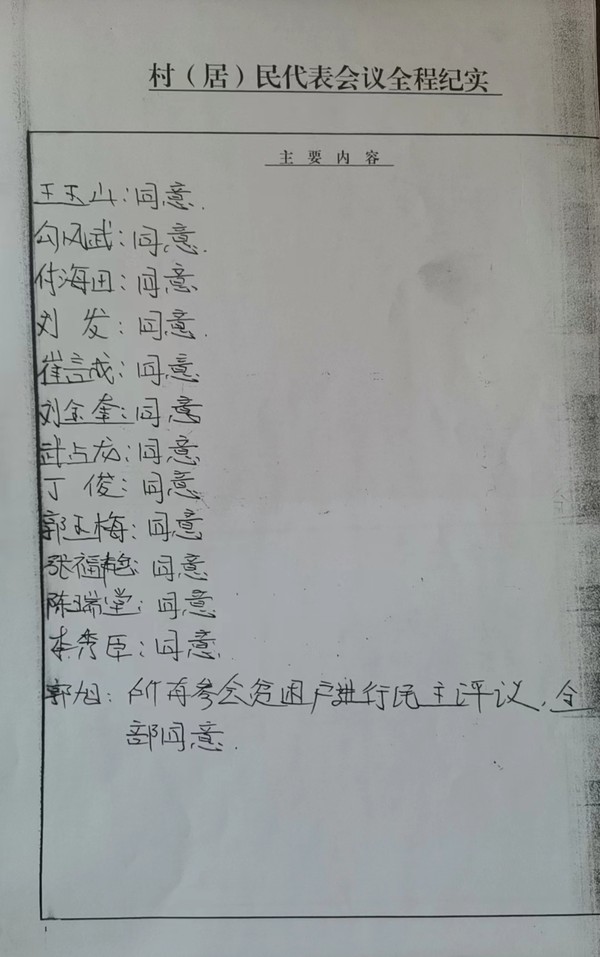 村（居）民代表会议全程纪实
主要内容
王玉山：同意.
勾风武：同意.
付海田：同意
刘发：同意.
崔言成：同意.
刘金奎：同意
武占龙：同意
丁俊：同意
郭玉梅：同意
张福艳：同意
陈瑞堂：同意
李秀臣：同意.
郭旭：所有参会贫困户进行民主评议，全
部同意.